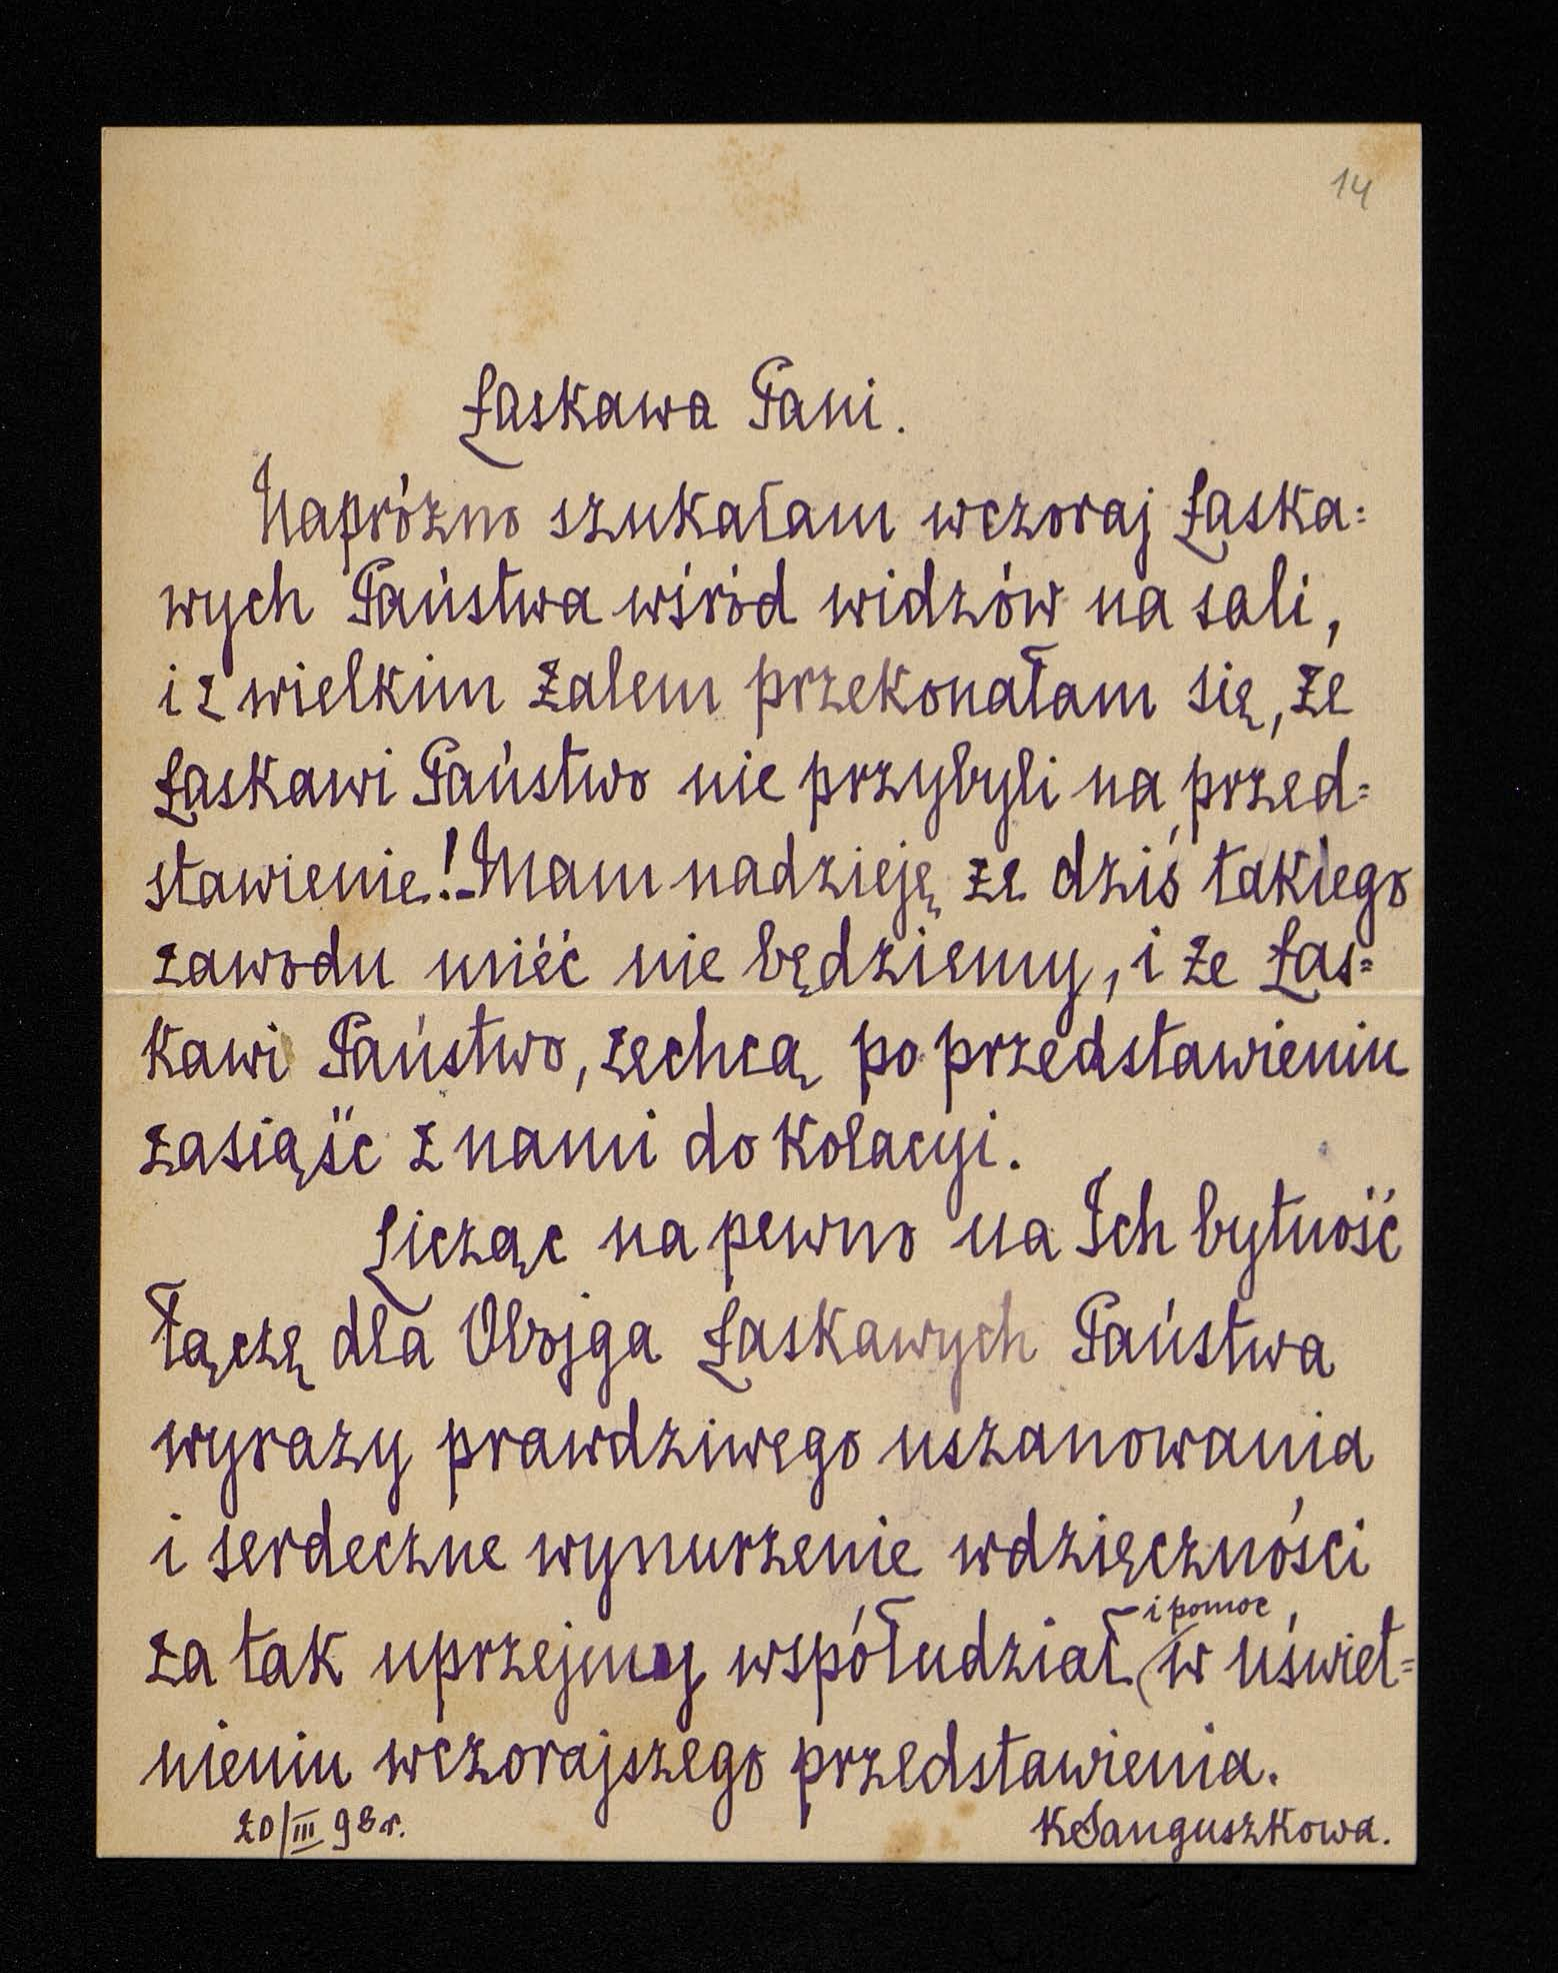 14
Łaskawa Pani.
Napróżno szukałam wczoraj Łaska=
wych Państwa wśród widzów na sali,
i z wielkim żalem przekonałam się, że
Łaskawi Państwo nie przybyli na przed=
stawienie! - Mam nadzieję że dziś takiego
zawodu mieć nie będziemy, i że Łas=
kawi Państwo, zechcą po przedstawieniu
zasiąść z nami do kolacyi.
Licząc na pewno na Ich bytność
łączę dla Obojga Łaskawych Państwa
wyrazy prawdziwego uszanowania
i serdeczne wynurzenie wdzięczności
za tak uprzejmy współudział i pomoc w uświet=
nieniu wczorajszego przedstawienia.
20/III 98 r. KSanguszkowa.